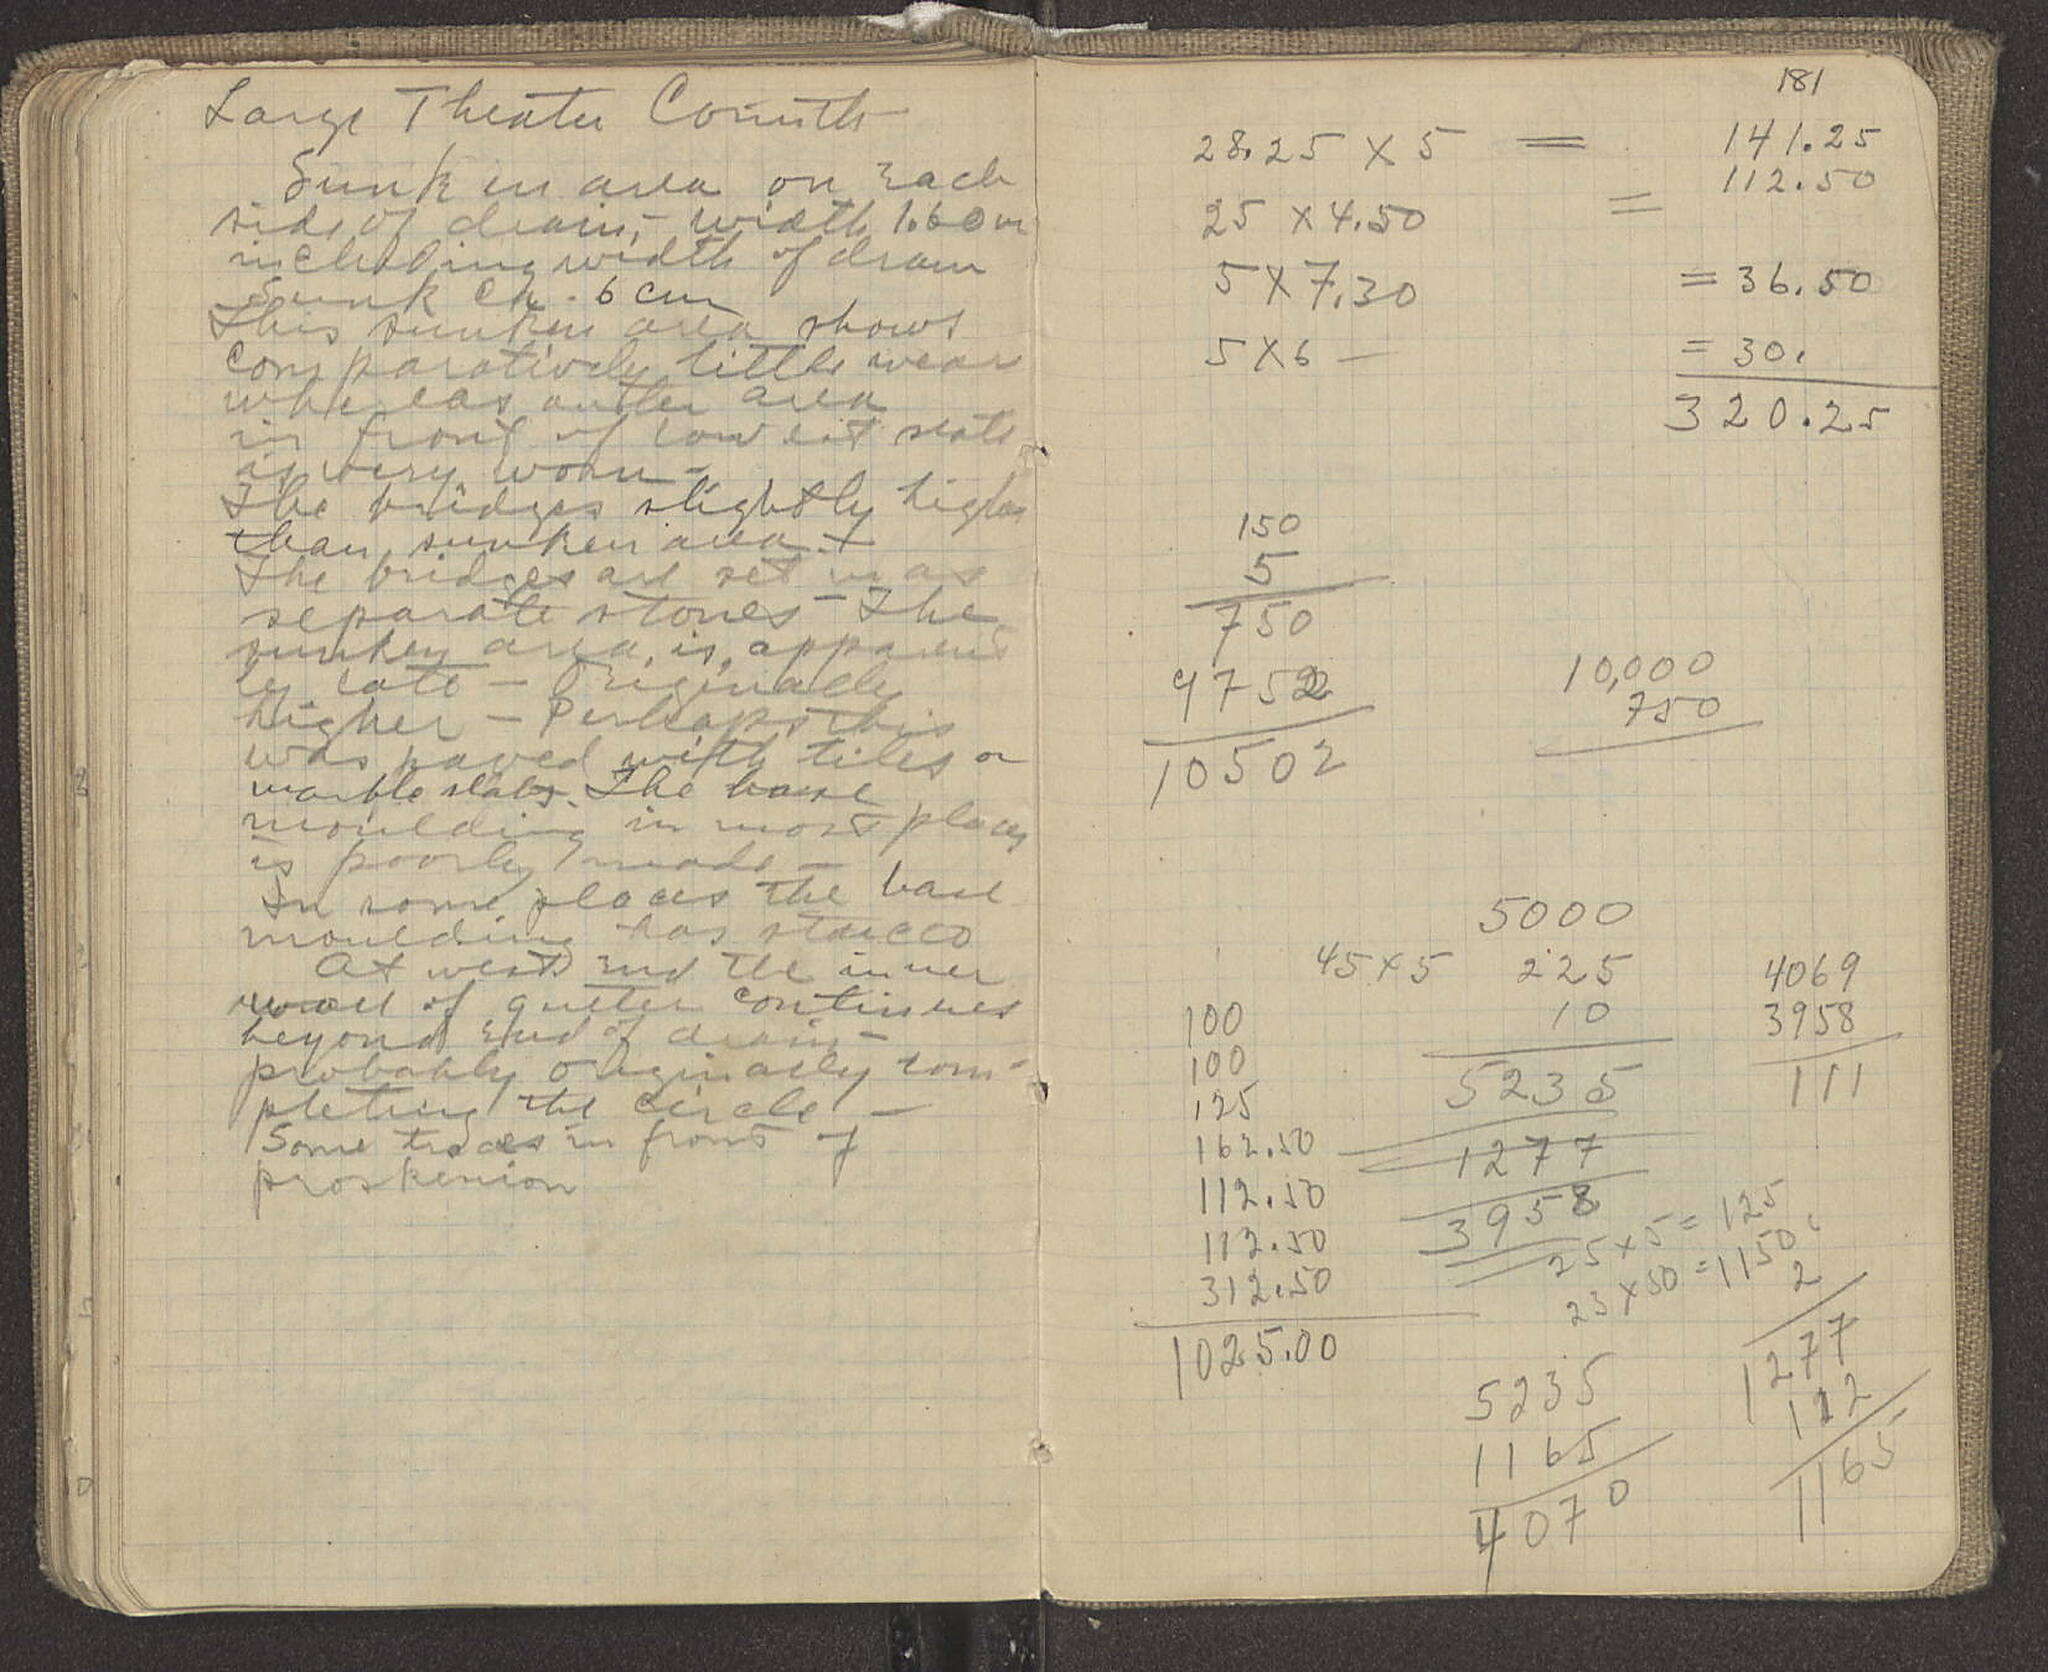 Large Theater Corinth
Sunken area on each
side of drain, – width 1.60 m
including width of drain
Sunk ca. 6 cm
This sunken area shows
comparatively little wear
whereas outer area
in front of lowest seats
is very worn –
The bridges slightly higher
than sunken area –
The bridges are set in as
separate stones – The
sunken area is apparent
ly late – Originally
higher – Perhaps this
was paved with tiles or
marble slabs. The base
moulding in most places
is poorly made –
In some places the base
moulding has stucco
At west end the inner
wall of gutter continues
beyond end of drain –
probably originally com-
pleting the circle –
Some traces in front of
proskenion
181
28.25 x 5 = 141.25
25 x 4.50 = 112.50
5 x 7.30 = 36.50
5 x 6 – = 30.
320.25
150
5
750
9752
10502
10,000
750
5000
45 x 5 225
10
5235
1277
3958
4069
3958
111
100
100
125
162.50
112.50
112.50
312.50
1025.00
25 x 5 = 125
23 x 50 = 1150.
2
1277
112
1165
5235
1165
4070